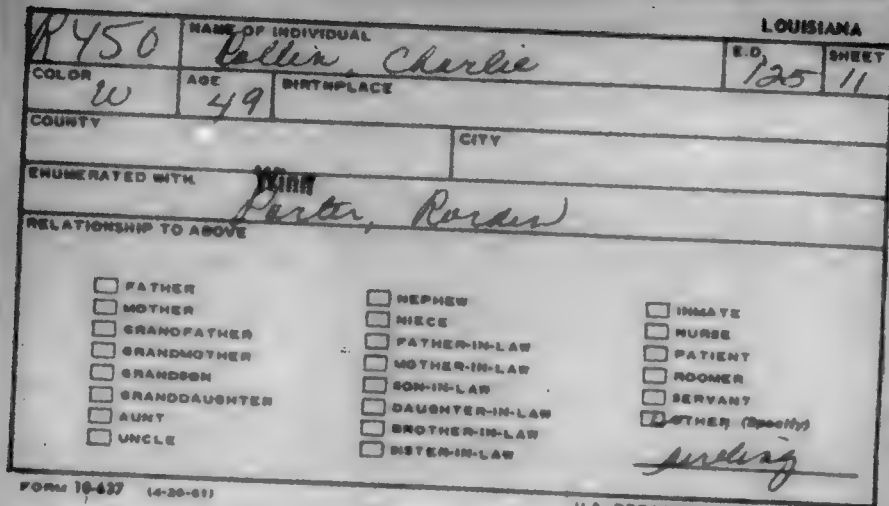 LOUISIANA
R450 NAME OF INDIVIDUAL Rollin, Charlie E.D. 125 SHEET 11
COLOR W AGE 49 BIRTHPLACE
COUNTY CITY
Winn
ENUMERATED WITH
Porter,
RELATIONSHIP TO ABOVE
FATHER
MOTHER
GRANDFATHER
GRANDMOTHER
GRANDSON
GRANDDAUGHTER
AUNT
UNCLE
NEPHEW
NIECE
FATHER-IN-LAW
MOTHER-IN-LAW
SON-IN-LAW
DAUGHTER-IN-LAW
BROTHER-IN-LAW
SISTER-IN-LAW
INMATE
NURSE
PATIENT
ROOMER
SERVANT
OTHER (Specify)
FORM 10-637 (4-20-61)